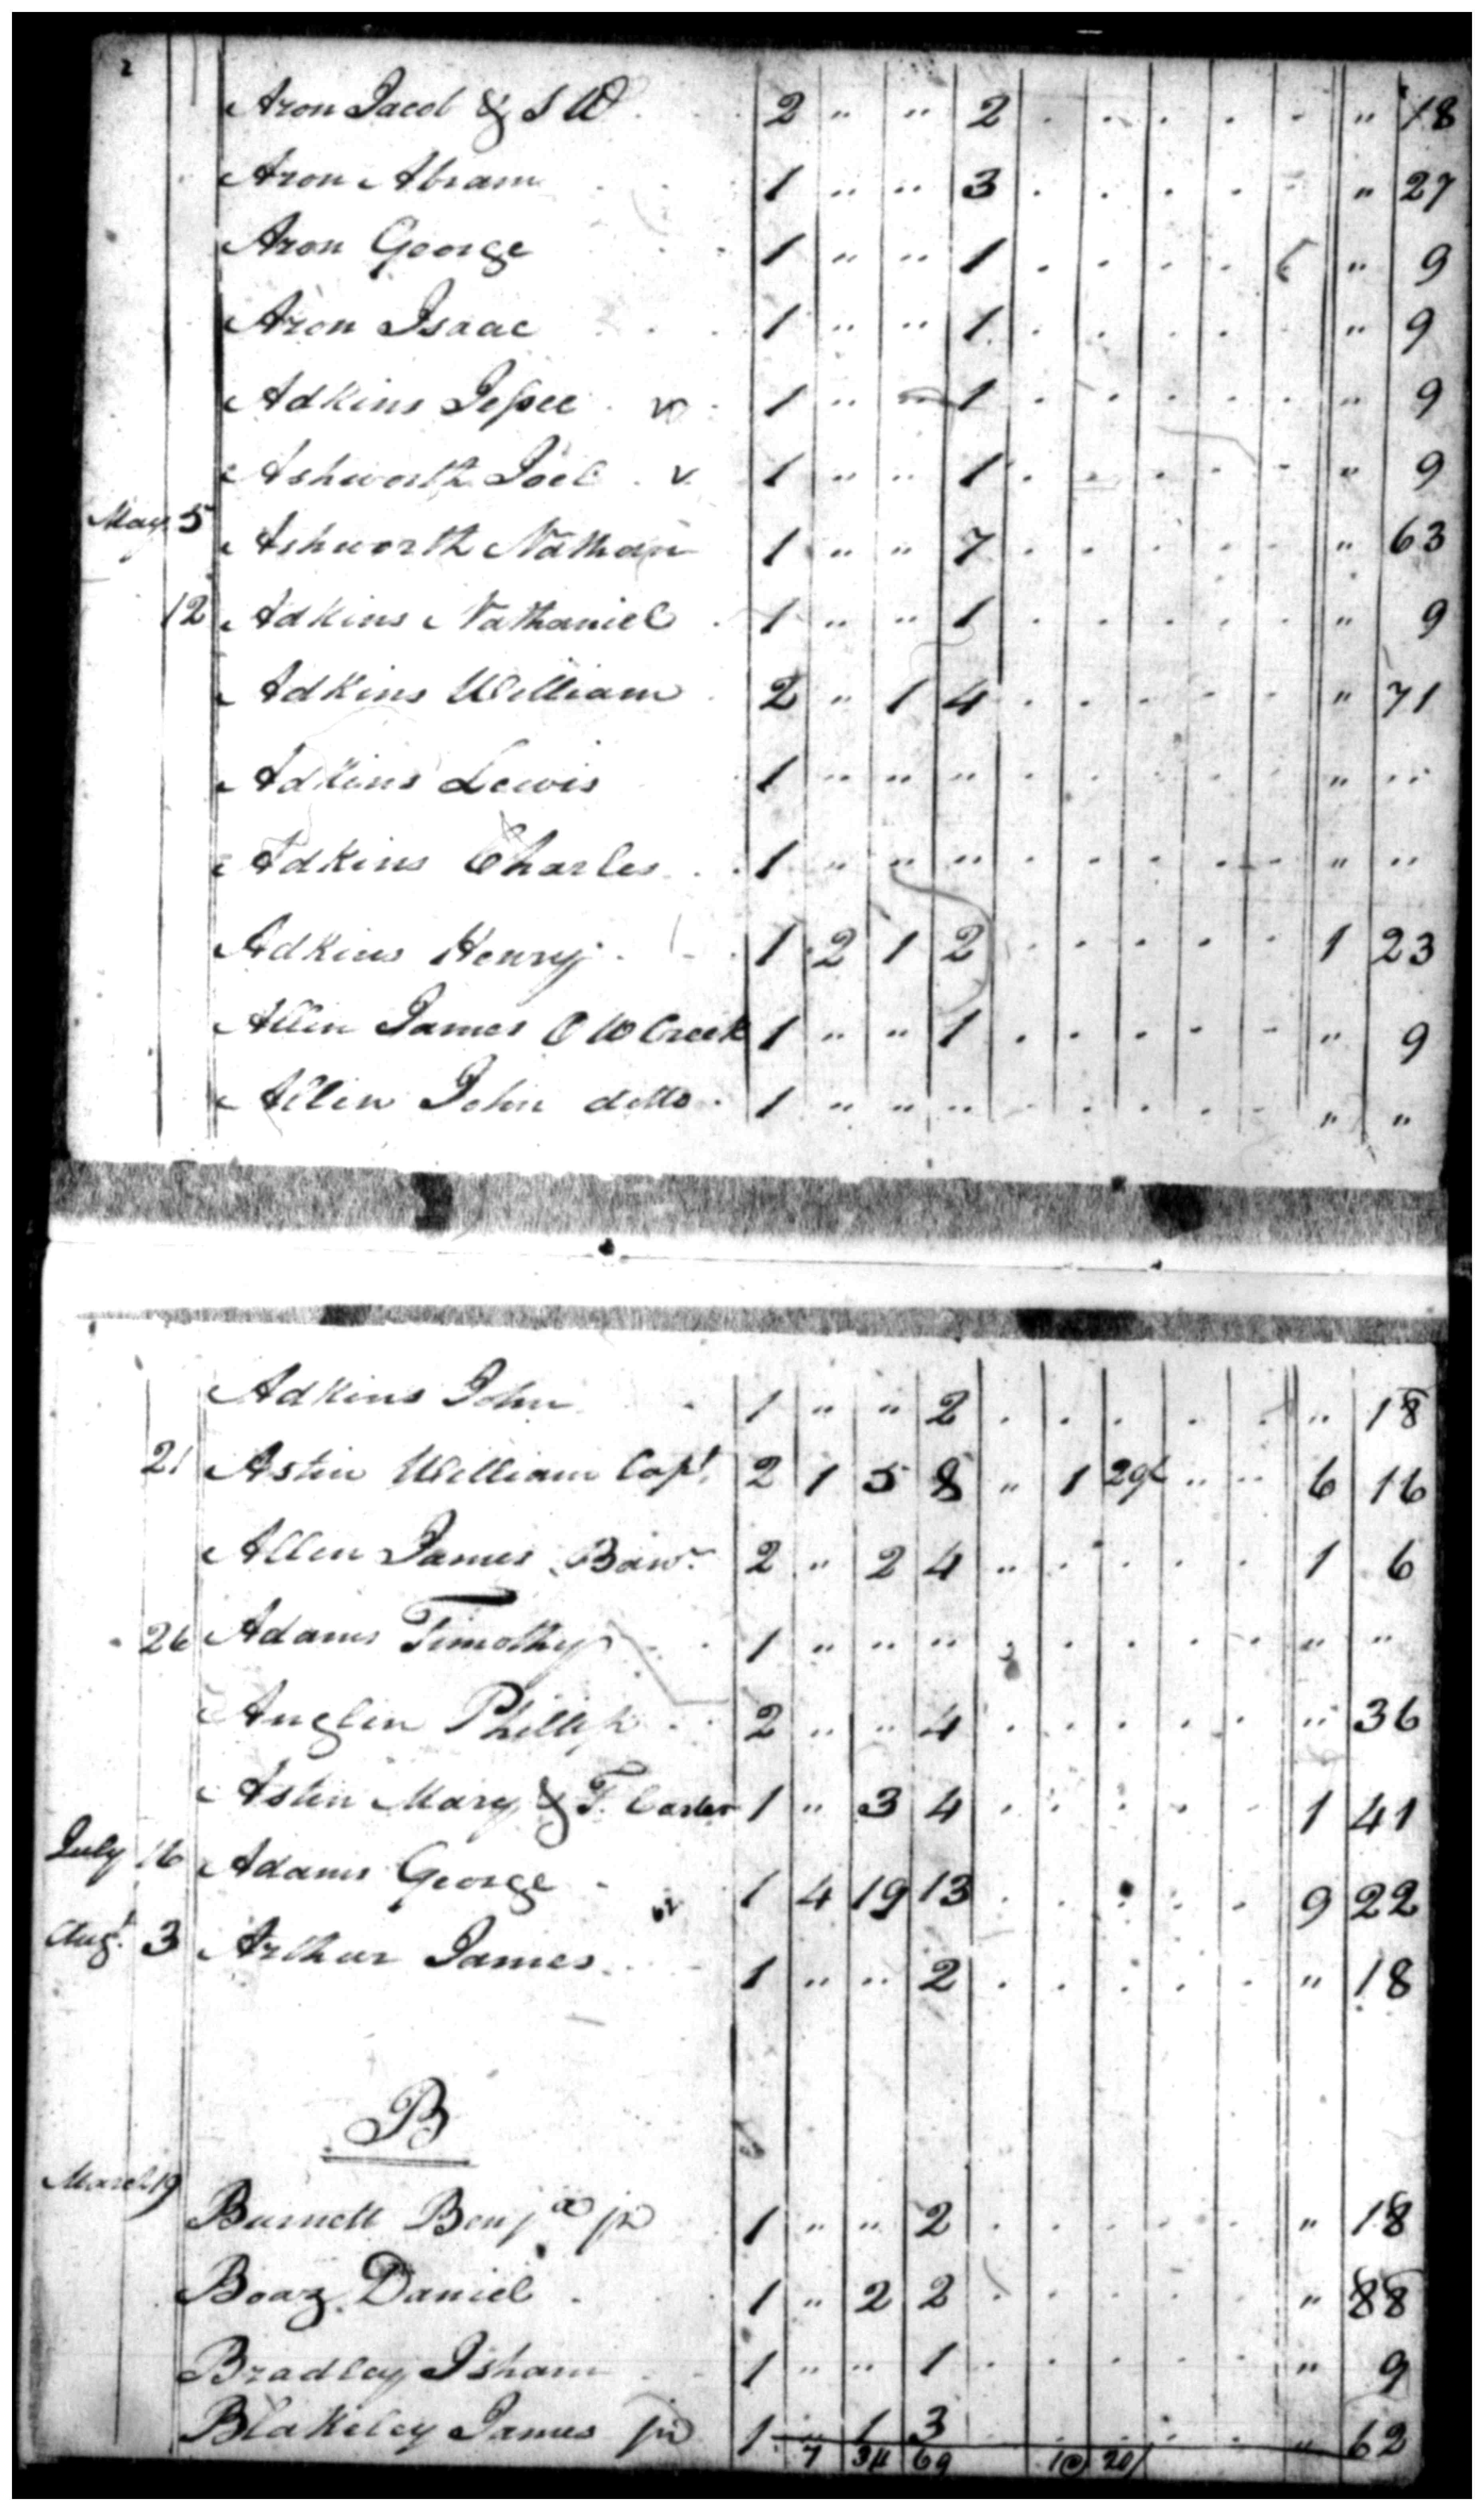 2
Aron Jacob & S W 2 " " 2 . . . . . " 18
Aron Abram 1 " " 3 . . . . . " 27
Aron George 1 " " 1 . . . . " 9
Aron Isaac 1 " " 1 . . . . . " 9
Adkins Jessee 1 " " 1 . . . . . " 9
Ashworth Joel v 1 " " 1 . . . . . " 9
May 5 Ashworth Nathan 1 " " 7 . . . . . " 63
12 Adkins Nathaniel 1 " " 1 . . . . . " 9
Adkins William 2 " 1 4 . . . . . " 71
Adkins Lewis 1 " " " . . . . . " "
Adkins Charles 1 " " " . . . . . " "
Adkins Henry 1 2 1 2 . . . . . 1 23
Allin James Creek 1 " " 1 . . . . . " 9
Allin John ditto 1 " " " . . . . . " "
Adkins John 1 " " 2 . . . . . " 18
21 Astin William Capt. 2 1 5 8 " 1 " " 6 16
Allen James 2 " 2 4 " . . . . 1 6
26 Adams Timothy 1 " " " . . . . . " "
Anglin Phillip 2 " " 4 . . . . . " 36
Astin Mary & T. Carter 1 " 3 4 . . . . . 1 41
July 16 Adams George 1 4 19 13 . . . . . 9 22
Augt. 3 Arthur James 1 " " 2 . . . . . " 18
B
March 19
Burnett Benja jr 1 " " 2 . . . . . " 18
Boaz Daniel 1 " 2 2 . . . . . " 88
Bradley Isham 1 " " 1 . . . . . " 9
Blakeley James jr 1 " 1 3 . . . . . " 62
7 34 69